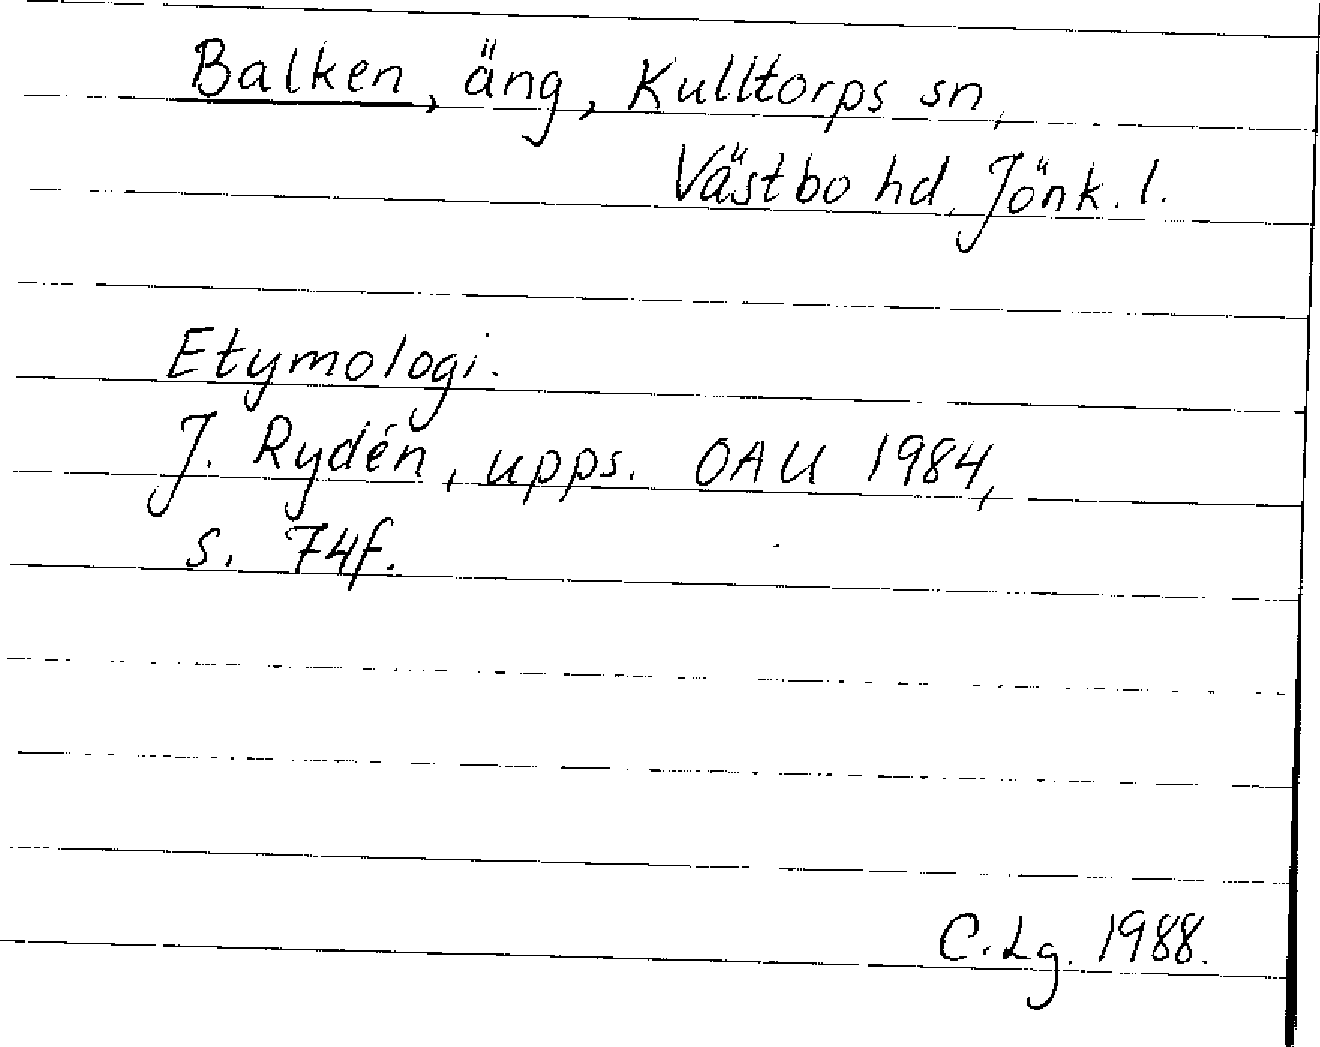 Balken, äng, Kulltorps sn,
Västbo hd, Jönk. l.
Etymologi.
J. Rydén, upps. OAU 1984,
s. 74f.
C. Lg. 1988.